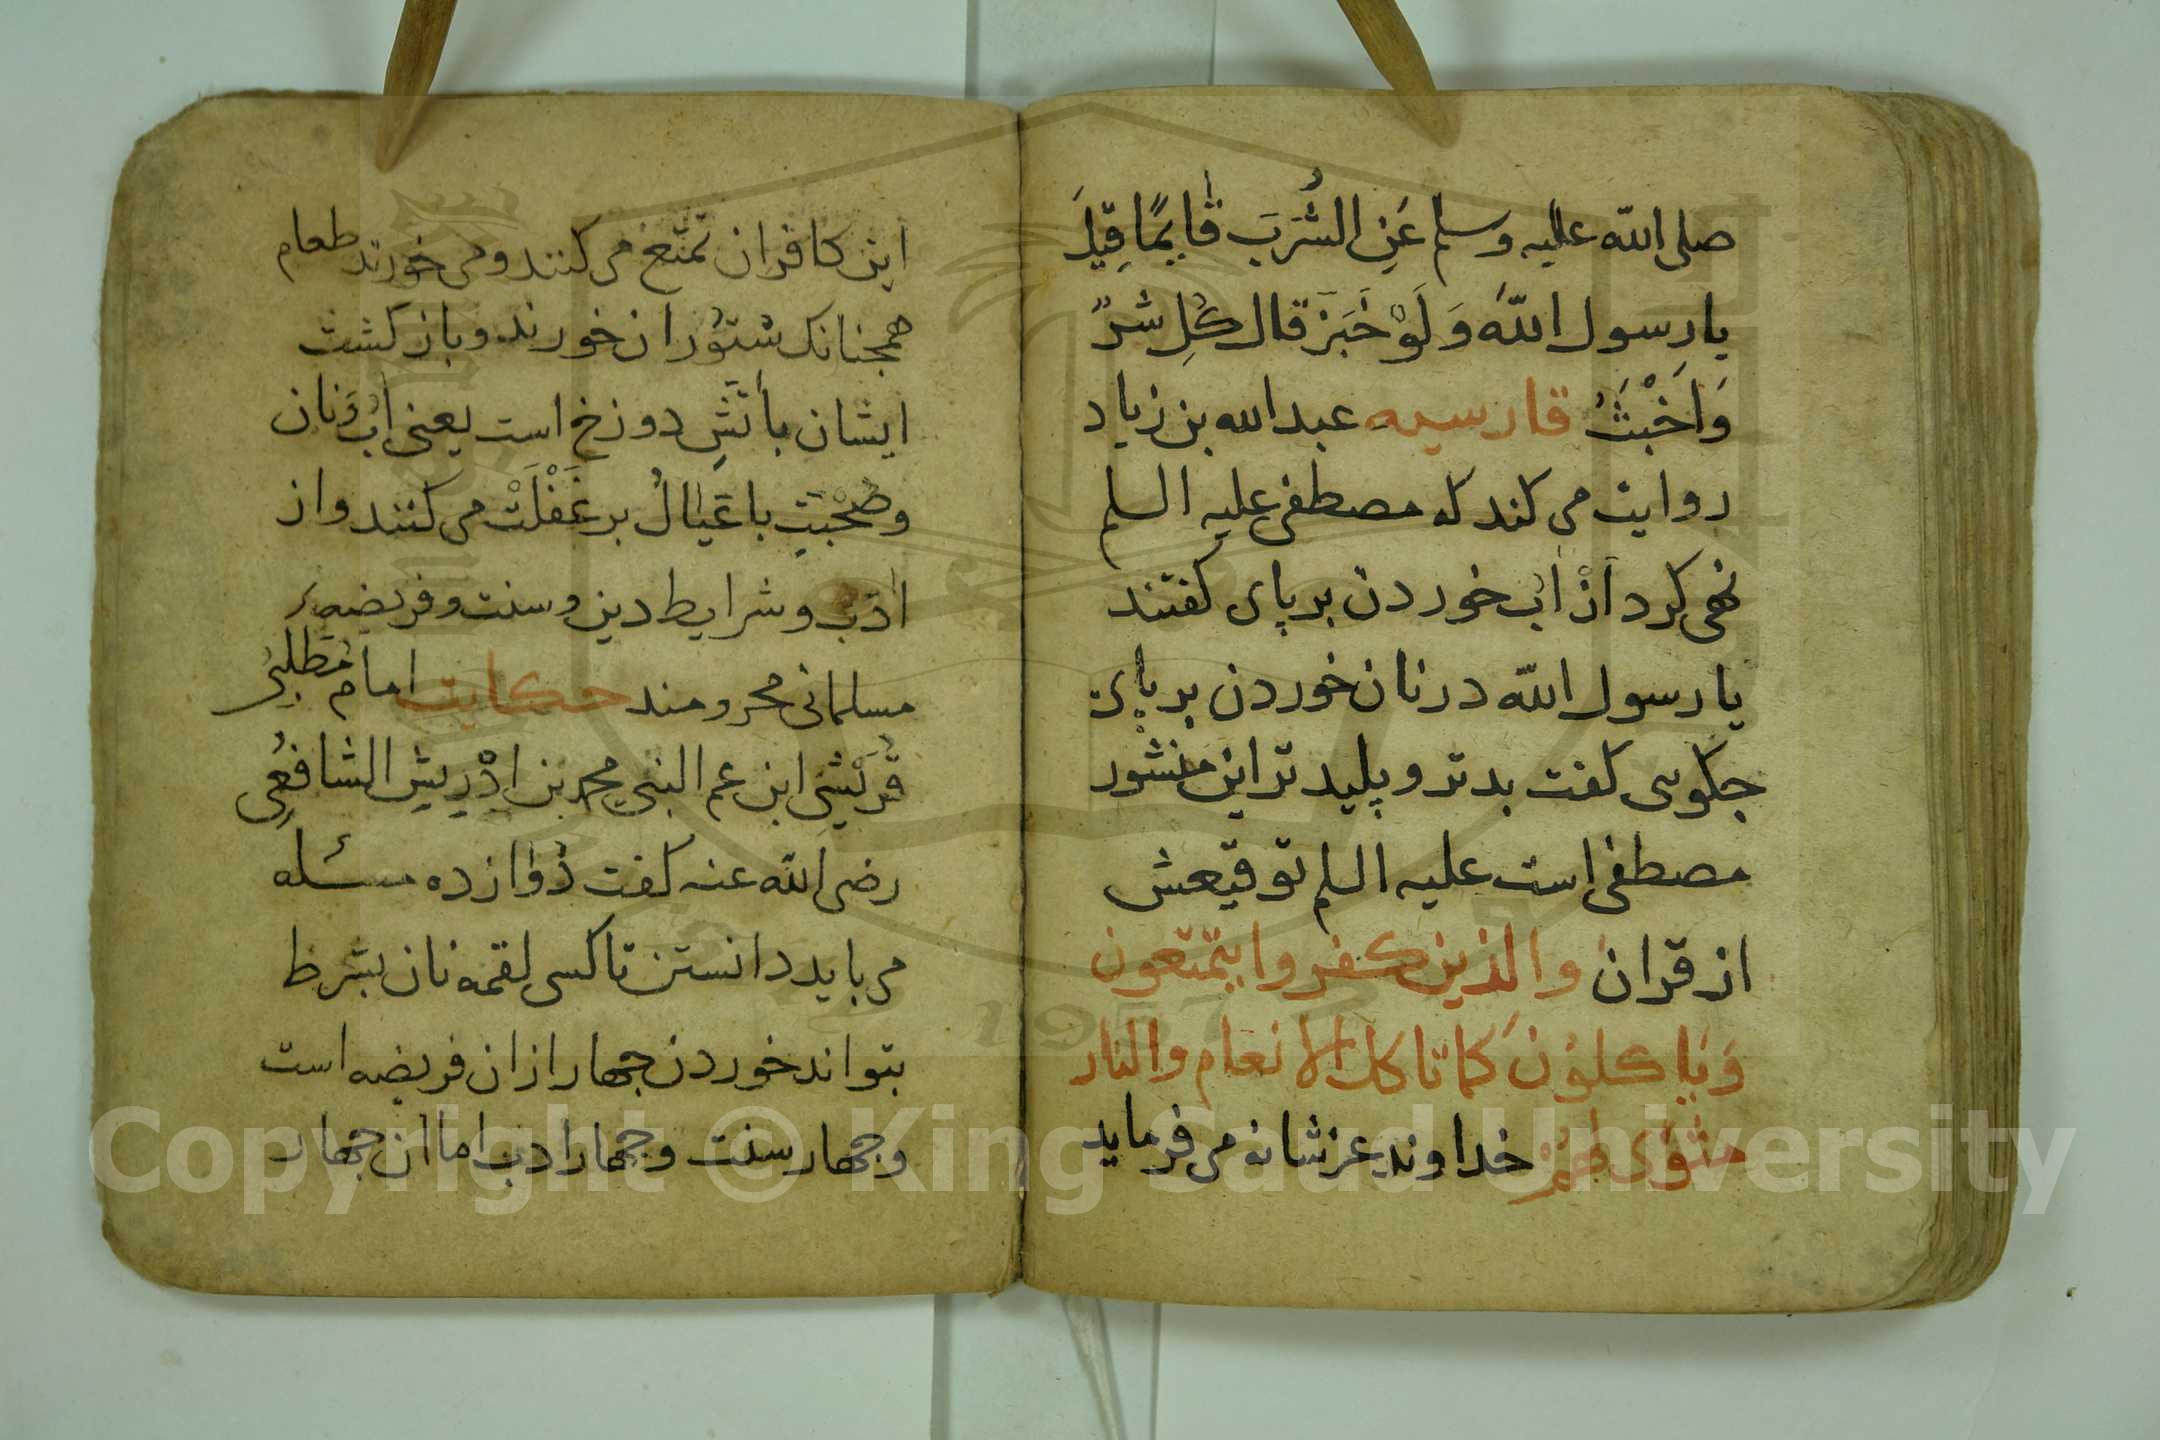 صلی الله علیه وسلم عَنِ الشُرَبَ قٰایمًا قِیلَ
یا رسول الله وَلَوْ خَبَزَ قال کُلِ شرً
وَاَخْبَثَُ فارسیه عبدالله بن زیاد
روایت می کند که مصطفی علیه السلم
نهی کرد از اب خوردن بر پای کفتند
یا رسول الله در نان خوردن بر پای
جکویی کفت بدتر و پلیدتر این منشور
مصطفی است علیه السلم توقیعش
از قران والذین کفروا یتمتعون
وَیَاکلوُنَ کما تاکل الانعام والنار
مثوًی لهُمْ خداوند عز شانه می فرماید
این کافران تمتّع می کنند و می خورند طعام
همجنانک سُتوُران خورند و باز کشت
ایشان بأتَشِ دوزخ است یعنی اب و نان
وصُحْبَتِ با عَیٰالُ بر غَفْلَتْ می کنند و از
ادَب و شرایط دین و سنت و فریضهٔ
مسلمانی محرومند حکایت امام مُطّلِبیُ
قُرَیْشیُ ابن عم النبی محمد بن ادْرِیسِ الشافعِی
رضی الله عنه کفت دُوٰازده مسئله
می باید دانستن تا کسی لقمه نان بشرط
بتواند خوردن جهار ازان فریضه است
وجهار سنت وجهار ادب اما ان جهار
Copyright © King Saud University
1957